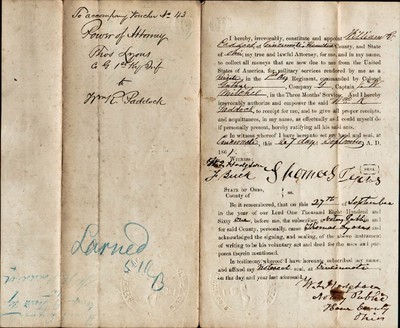 To accompany Voucher No 43
Power of Attorney
Thos Lyons
Co G 1st Ky Inf
to
Wm R. Paddock
Larned
510
I hereby, irrevocably, constitute and appoint William R.
Paddock of Cincinnati Hamilton County, and State
of Ohio, my true and lawful Attorney, for me, and in my name,
to collect all moneys that are now due to me from the United
States of America, for military services rendered by me as a
in the 1st Ky Regiment, commanded by
Company G, Captain
Mitchel, in the Three Months' Service. And I hereby
irrevocably authorize and empower the said Wm R.
Paddock, to receipt for me, and to give all proper receipts,
and acquittances, in my name, as effectually as I could do
if personally present, hereby ratifying all his said acts.
In witness whereof I have hereunto set my hand and seal, at
Cincinnati, this 27 day September A. D.
186
Witness:
Wm L. Hodgson
F. Buck
Thomas Lyons
SEAL
State of Ohio,
County of
ss.
Be it remembered, that on this 27th September
in the year of our Lord One Thousand Eight Hundred and
Sixty One before me, the subscriber, a Notary Public
for said County, personally came Thomas Lyons and
acknowledged the signing, and sealing, of the above instrument
of writing to be his voluntary act and deed for the uses and pur-
poses therein mentioned.
In testimony whereof I have hereunto subscribed my name
and affixed my Notarial seal, at Cincinnati
on the day and year last aforesaid.
Wm L Hodgson
Notary Public
Ham County
Ohio